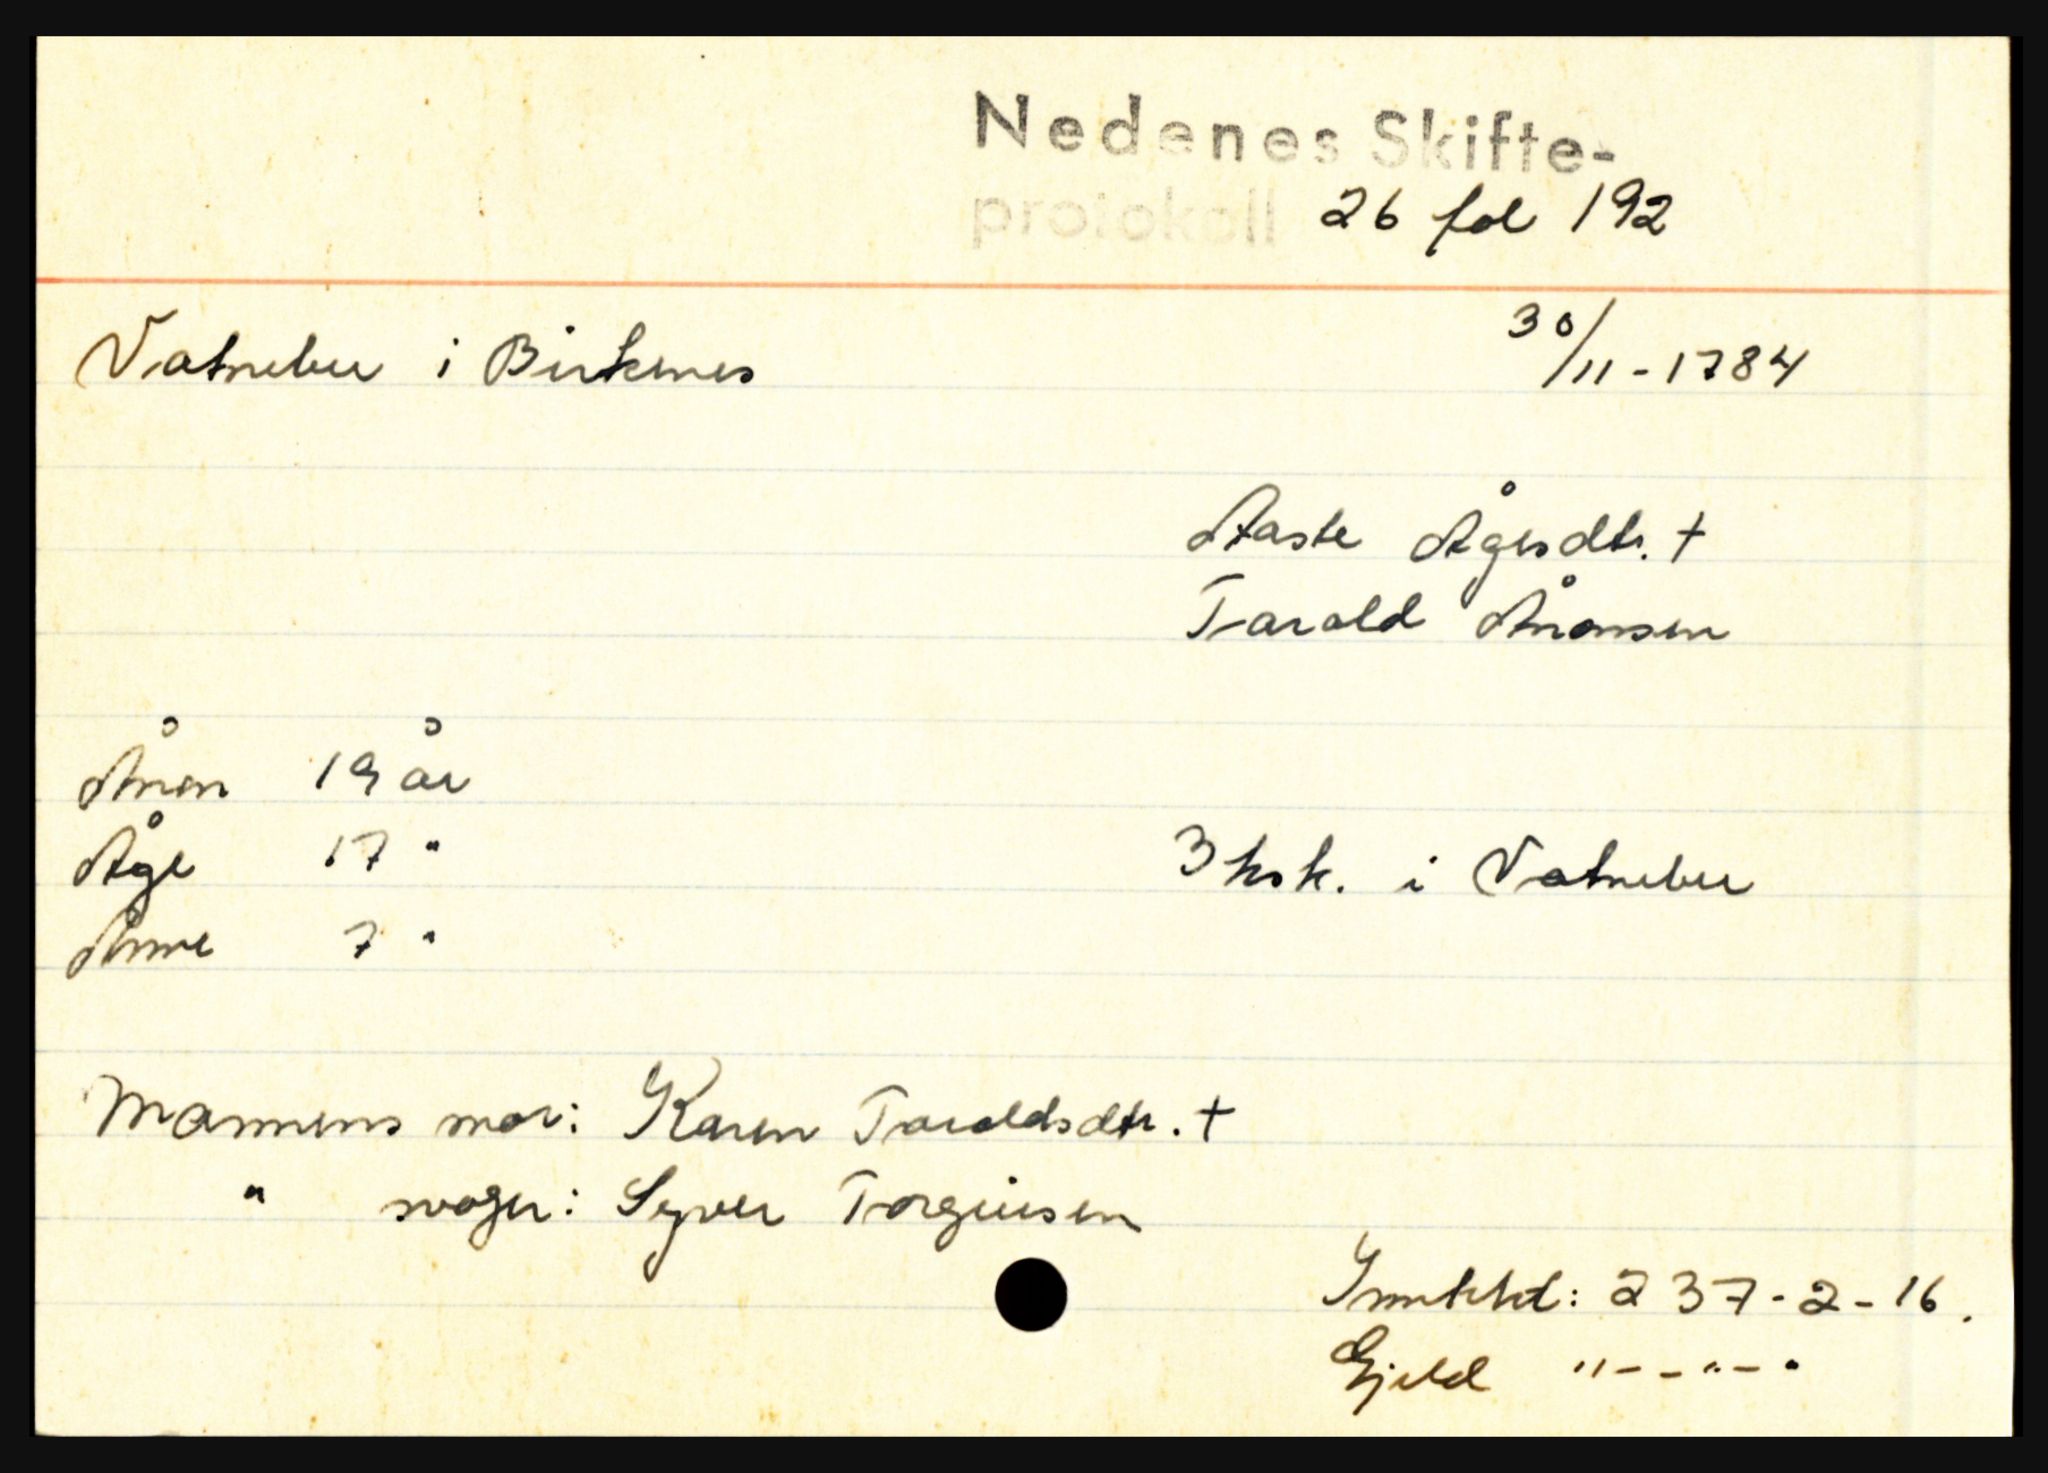 Nedenes Skifte-
protokoll 26 fol 192
Vatnebu i Birkenes 30/11-1784
Aaste Ågesdtr. +
Tarald Ånonsen
Ånon 19 år
Åge 17 "
Anne 7 "
3 ksk. i Vatnebu
Mannens mor: Karen Taraldsdtr. +
" svoger: Syver Torgiusen
237-2-16.
Gjeld "--"-"